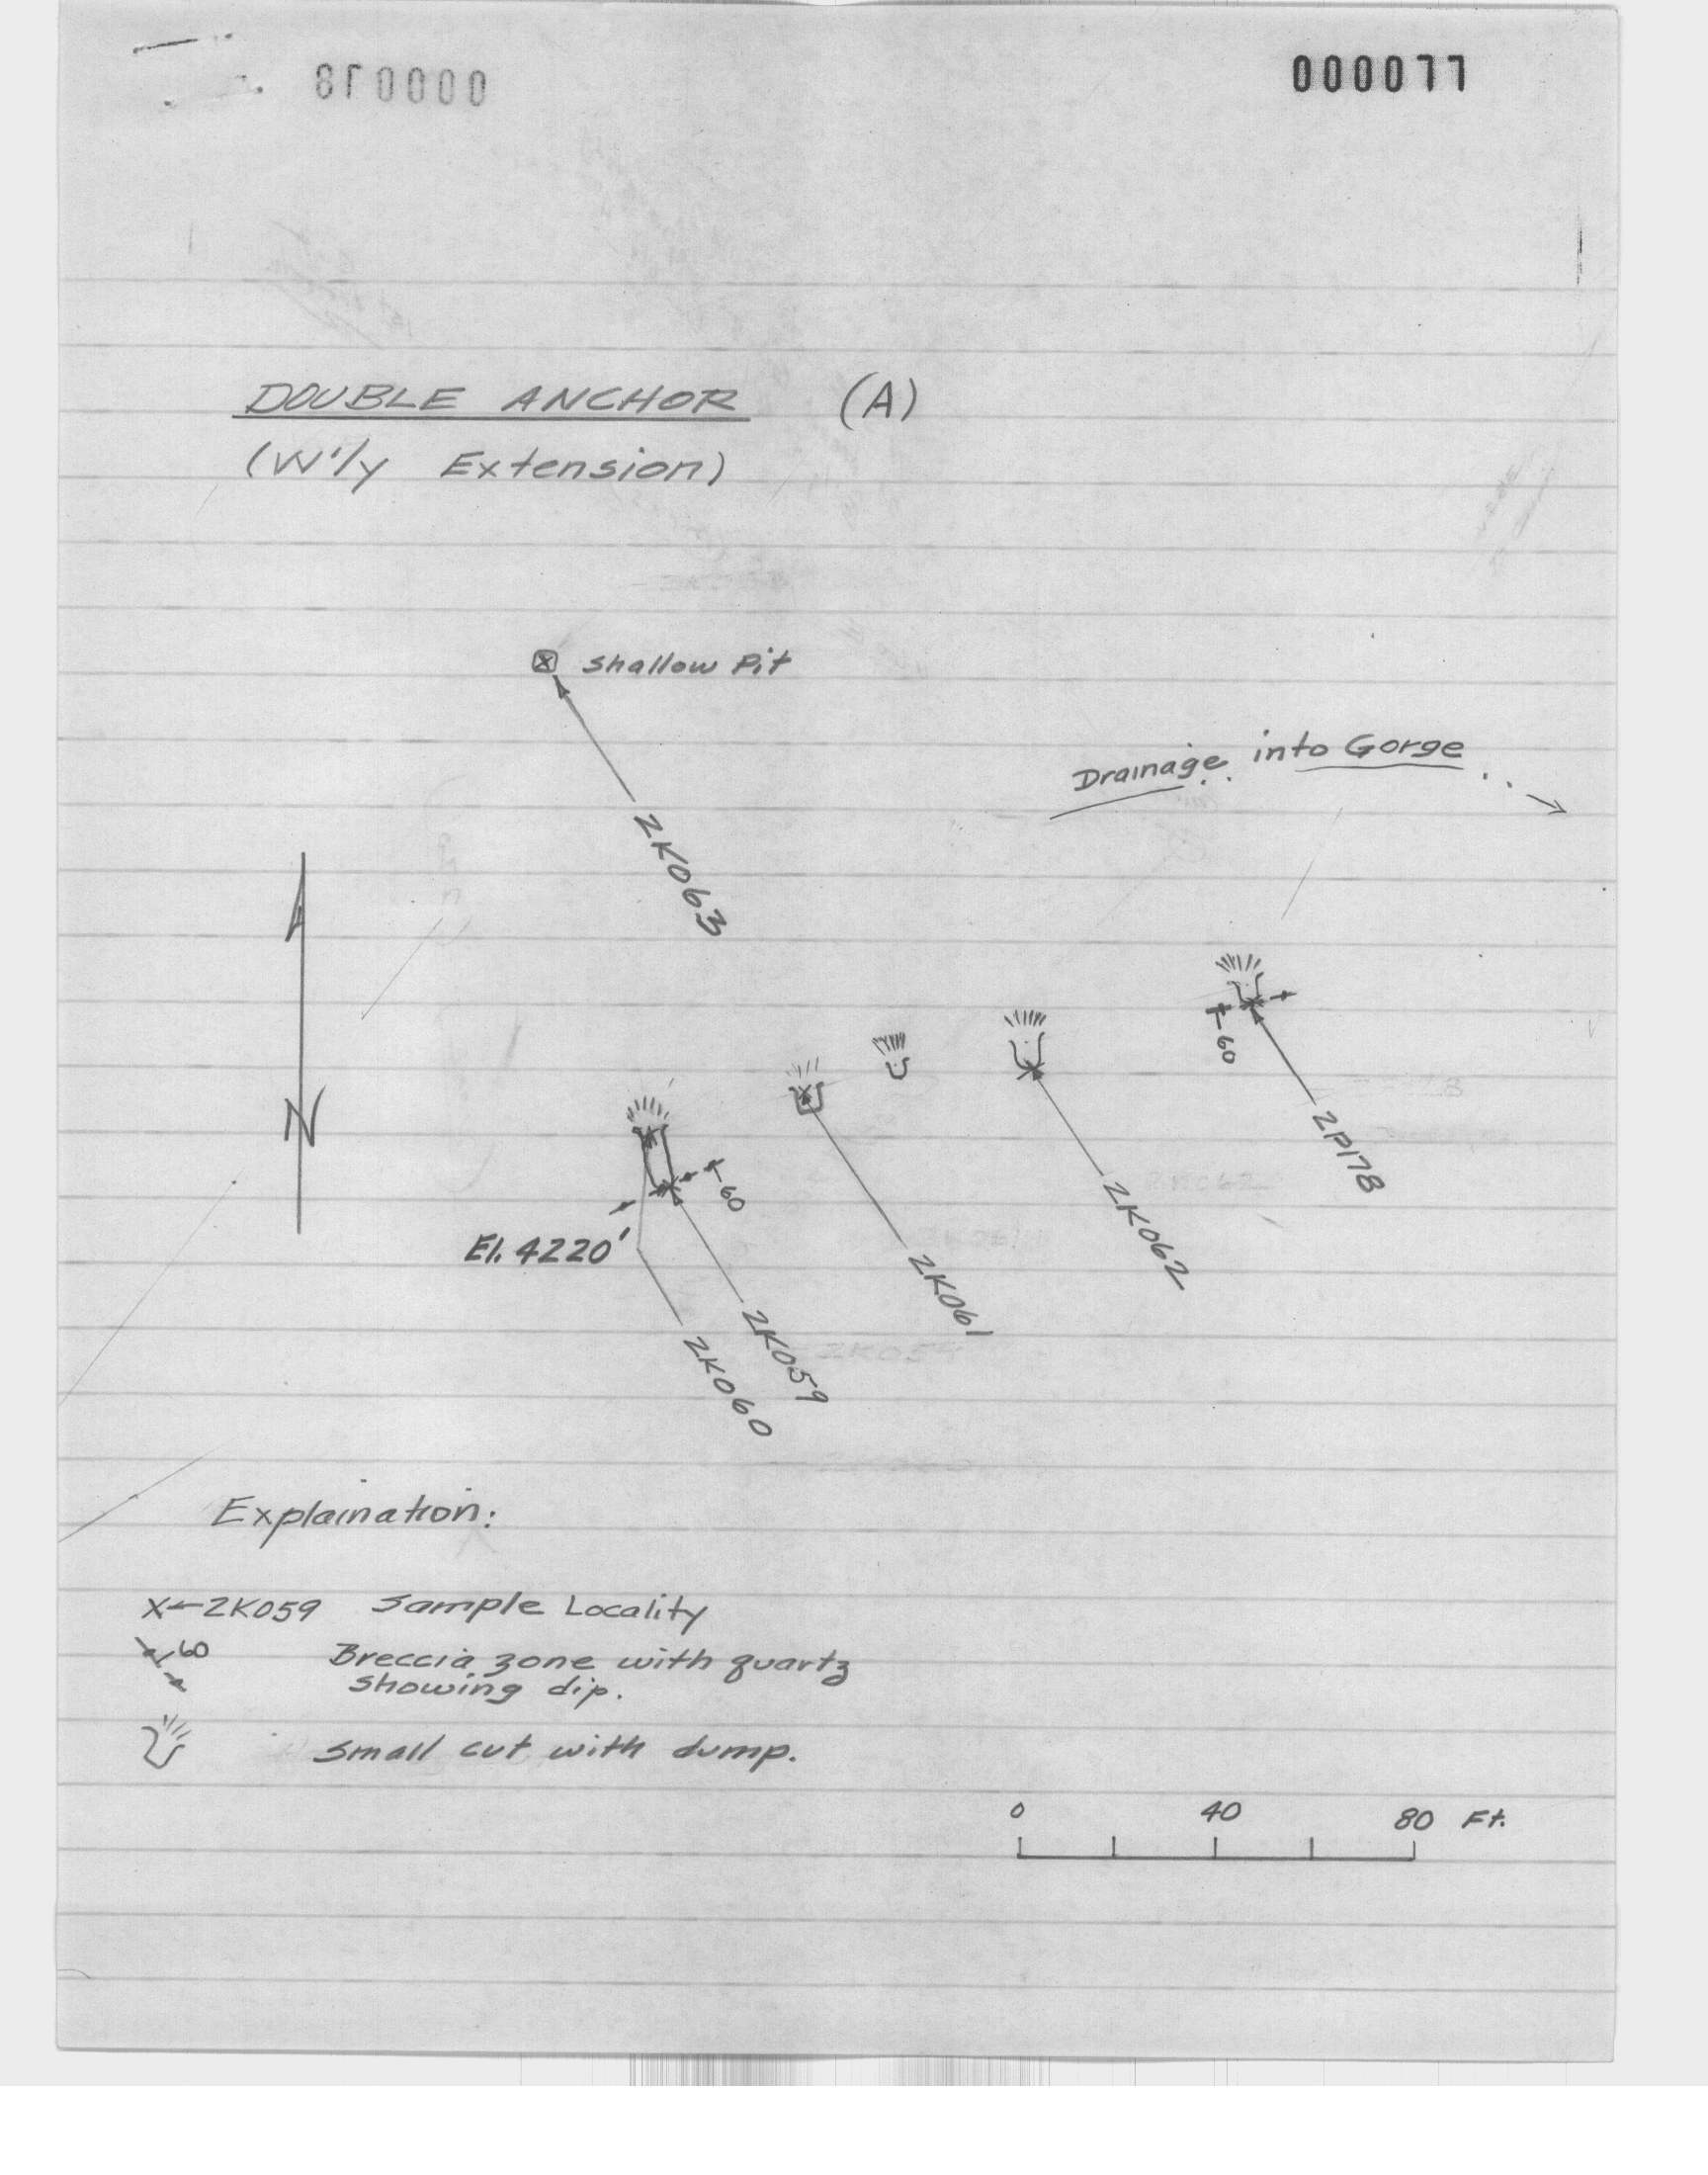 000077
DOUBLE ANCHOR (A)
(W'ly Extension)
shallow Pit
Drainage into Gorge
2K063
60
2P178
60
El. 4220'
2K062
2K061
2K059
2K060
N
Explaination:
X←2K059 Sample Locality
60 Breccia zone with quartz
showing dip.
Small cut with dump.
0 40 80 Ft.